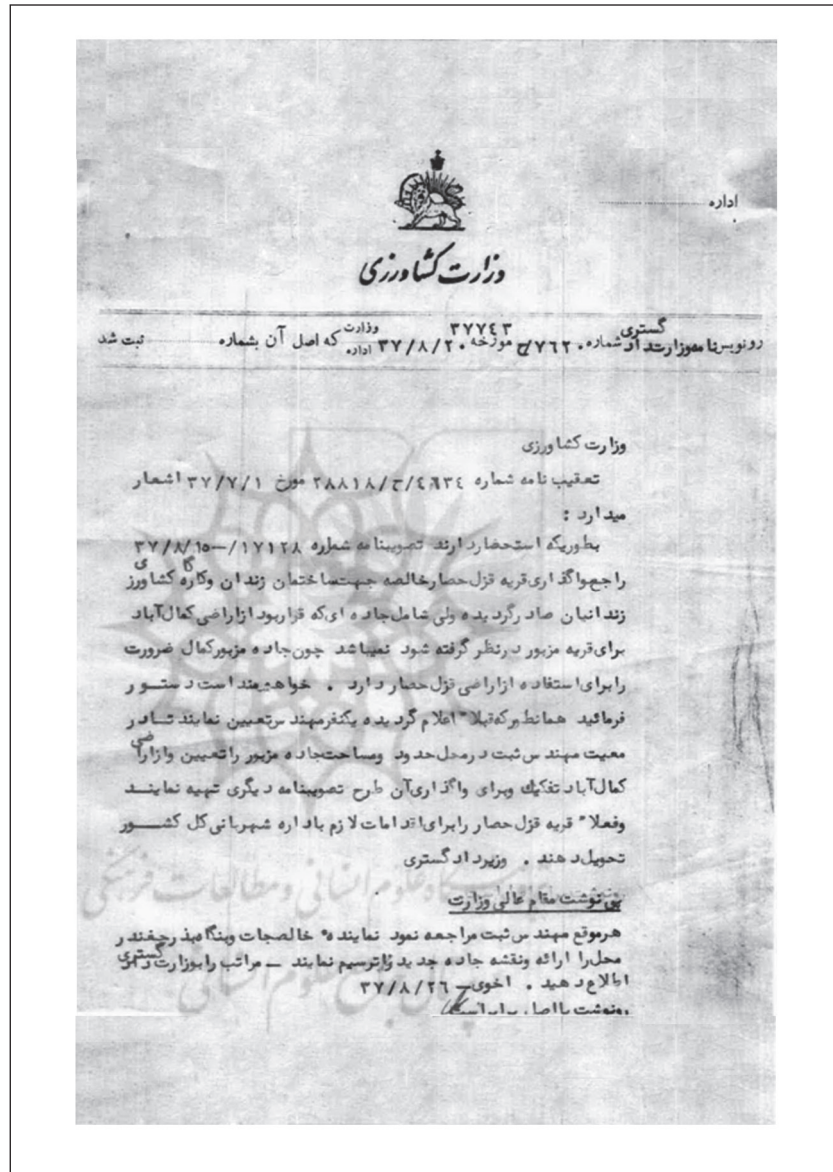 اداره
وزارت کشاورزی
رونویس نامه وزارت دادگستری شماره ۷۶۲۰/ح ۳۷۷۴۳ مورخه ۳۷/۸/۲۰ وزارت اداره که اصل آن بشماره ثبت شد
وزارت کشاورزی
تعقیب نامه شماره ۲۸۸۱۸/ح/۴۶۳۴ مورخ ۳۷/۷/۱ اشعار
میدارد :
بطوریکه استحضار دارند تصویبنامه شماره ۱۷۱۲۸/-۳۷/۸/۱۵
راجع بواگذاری قریه قزل حصار خالصه جهت ساختمان زندان وکارگاه کشاورزی
زندانیان صادر گردیده ولی شامل جاده ای که قرار بود از اراضی کمال آباد
برای قریه مزبور در نظر گرفته شود نمیباشد چون جاده مزبور کمال ضرورت
را برای استفاده از اراضی قزل حصار دارد . خواهشمند است دستور
فرمائید همانطور که قبلا" اعلام گردیده یکنفر مهندس تعیین نمایند تا در
معیت مهندس ثبت در محل حدود ومساحت جاده مزبور را تعیین واز اراضی
کمال آباد تفکیک وبرای واگذاری آن طرح تصویبنامه دیگری تهیه نمایند
وفعلا" قریه قزل حصار را برای اقدامات لازم باداره شهربانی کل کشور
تحویل دهند . وزیر دادگستری
پی نوشت مقام عالی وزارت
هر موقع مهندس ثبت مراجعه نمود نماینده خالصجات وبنگاه بذر چغندر
محل را ارائه ونقشه جاده جدید را ترسیم نمایند – مراتب را بوزارت دادگستری
اطلاع دهید . اخوی – ۳۷/۸/۲۶
رونوشت با اصل برابر است